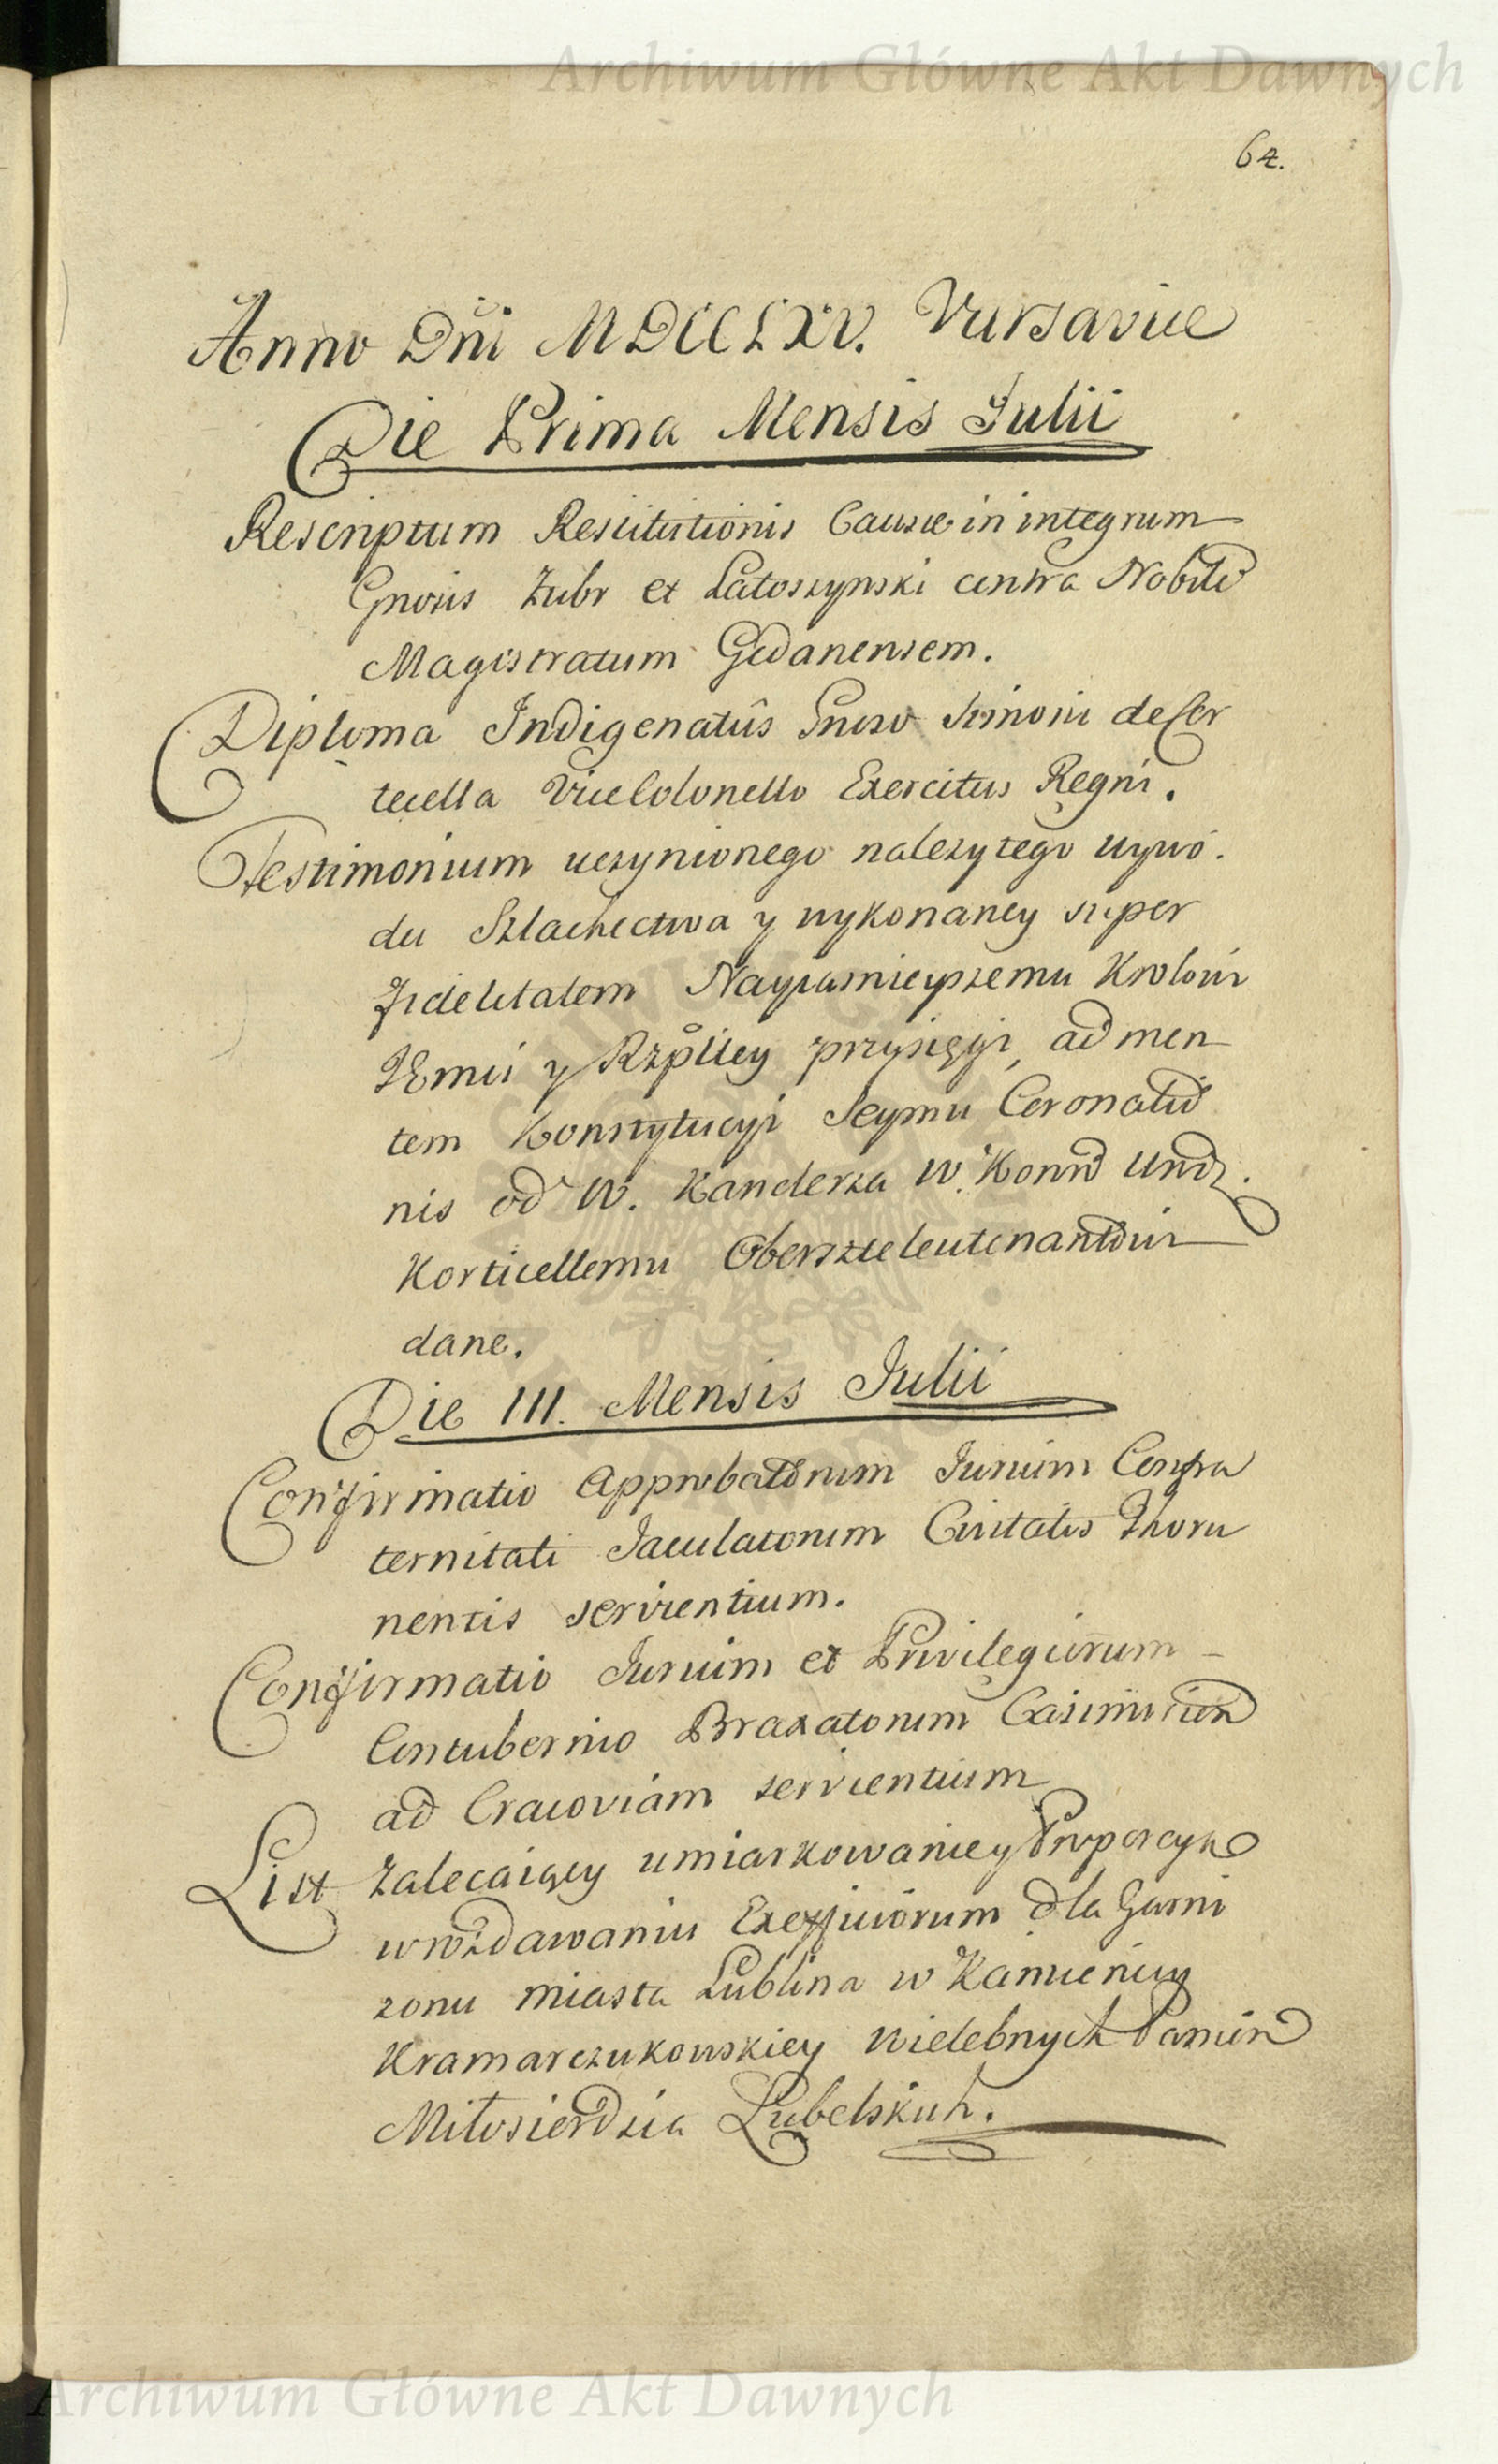 Archiwum Główne Akt Dawnych
64.
Anno Dni MDCCLXV. Varsaviæ
Die Prima Mensis Julii
Rescriptum Restitutionis Causæ in integrum
Gnosis Zubr et Latoszynski contra Nobile
Magistratum Gedanensem.
Diploma Indigenatûs Gnoso Simoni de Cor
ticella ViceColonello Exercitus Regni.
Testimonium uczynionego nalezytego wywo.
du Szlachectwa y wykonaney super
Fidelitatem Nayiasnieyszemu Krolowi
JEmci y Rzpltey przysięgi, ad men
tem Konstytucyi Seymu Coronatio
nis od W. Kanclerza W. Koron
Korticellemu Oberszteleutenantowi
dane.
Die III. Mensis Julii
Confirmatio Approbatorum Jurium Confra
ternitati Jaculatorum Civitatis Thoru
nensis servientium.
Confirmatio Jurium et Privilegiorum
Contubernio Braxatorum Casimirien
ad Cracoviam servientium
List zalecaiący umiarkowaniey Proporcyą
w rozdawaniu Exofficiorum dla Garni
zonu miasta Lublina w Kamienicy
Kramarczukowskiey Wielebnych Panien
Miłosierdzia Lubelskich.
Archiwum Główne Akt Dawnych